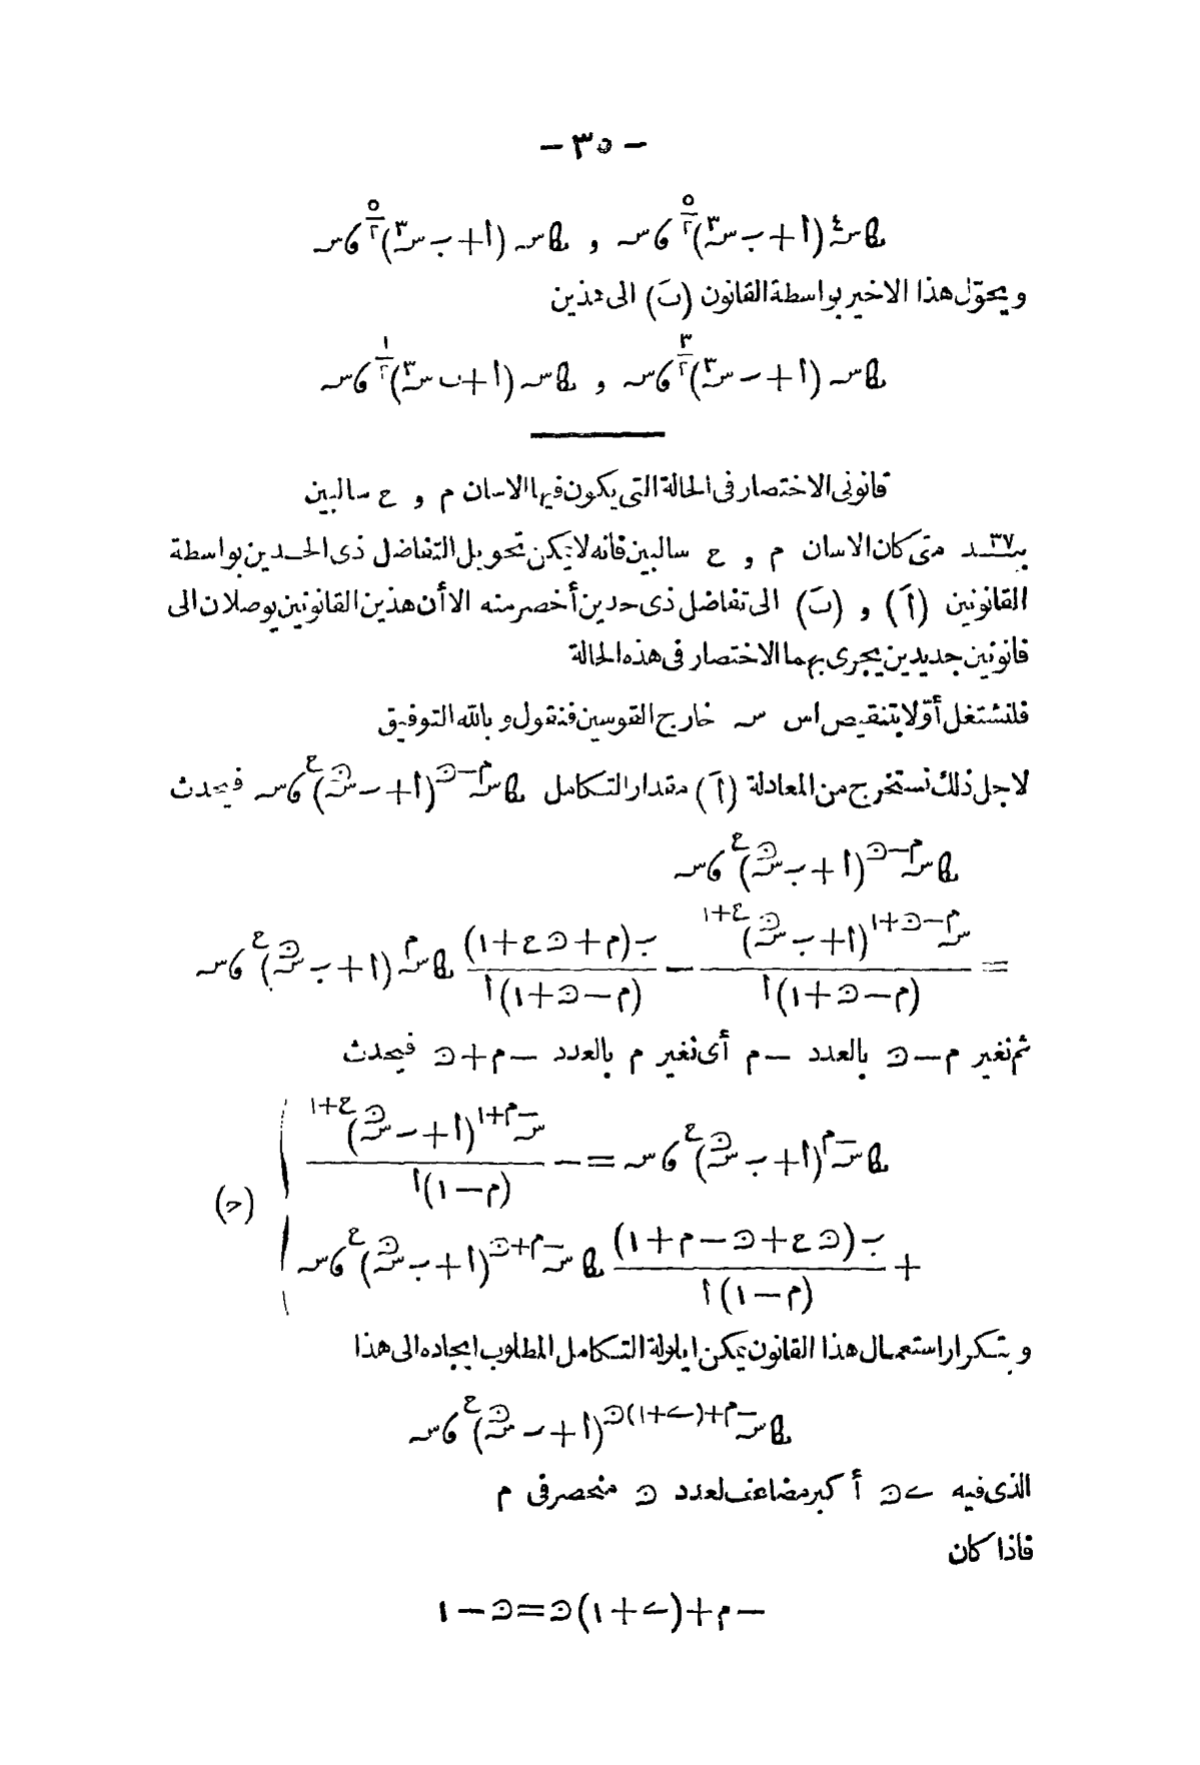 — ٣٥ —
ﻫ س٤ (أ + ب س٣)^(٥/٢) ٯ س و ﻫ س (أ + ب س٣)^(٥/٢) ٯ س
ويحوّل هذا الاخير بواسطة القانون (بَ) الى هذين
ﻫ س (أ + ب س٣)^(٣/٢) ٯ س و ﻫ س (أ + ب س٣)^(١/٢) ٯ س
قانونى الاختصار فى الحالة التى يكون فيها الاسان م و ع سالبين
بند ٣٧ متى كان الاسان م و ع سالبين فانه لا يمكن تحويل التفاضل ذى الحدين بواسطة
القانونين (أَ) و (بَ) الى تفاضل ذى حدين أخصر منه الا أن هذين القانونين يوصلان الى
قانونين جديدين يجرى بهما الاختصار فى هذه الحالة
فلنشتغل أوّلا بتنقيص اس س خارج القوسين فنقول وبالله التوفيق
لاجل ذلك نستخرج من المعادلة (أَ) مقدار التكامل ﻫ س^(م−ن) (أ + ب س^ن)^ع ٯ س فيحدث
ﻫ س^(م−ن) (أ + ب س^ن)^ع ٯ س
= س^(م−ن+١) (أ + ب س^ن)^(ع+١) / (م−ن+١) أ − ب (م+ن ع+١) / (م−ن+١) أ ﻫ س^م (أ + ب س^ن)^ع ٯ س
ثم نغير م − ن بالعدد − م أى نغير م بالعدد − م + ن فيحدث
ﻫ س^(−م) (أ + ب س^ن)^ع ٯ س = − س^(−م+١) (أ + ب س^ن)^(ع+١) / (م−١) أ
(ح)
+ ب (ن ع + ن − م + ١) / (م−١) أ ﻫ س^(−م+ن) (أ + ب س^ن)^ع ٯ س
وبتكرار استعمال هذا القانون يمكن ايلولة التكامل المطلوب ايجاده الى هذا
ﻫ س^(−م+(ے+١)ن) (أ + ب س^ن)^ع ٯ س
الذى فيه ے ن أكبر مضاعف لعدد ن منحصر فى م
فاذا كان
− م + (ے + ١) ن = ن − ١